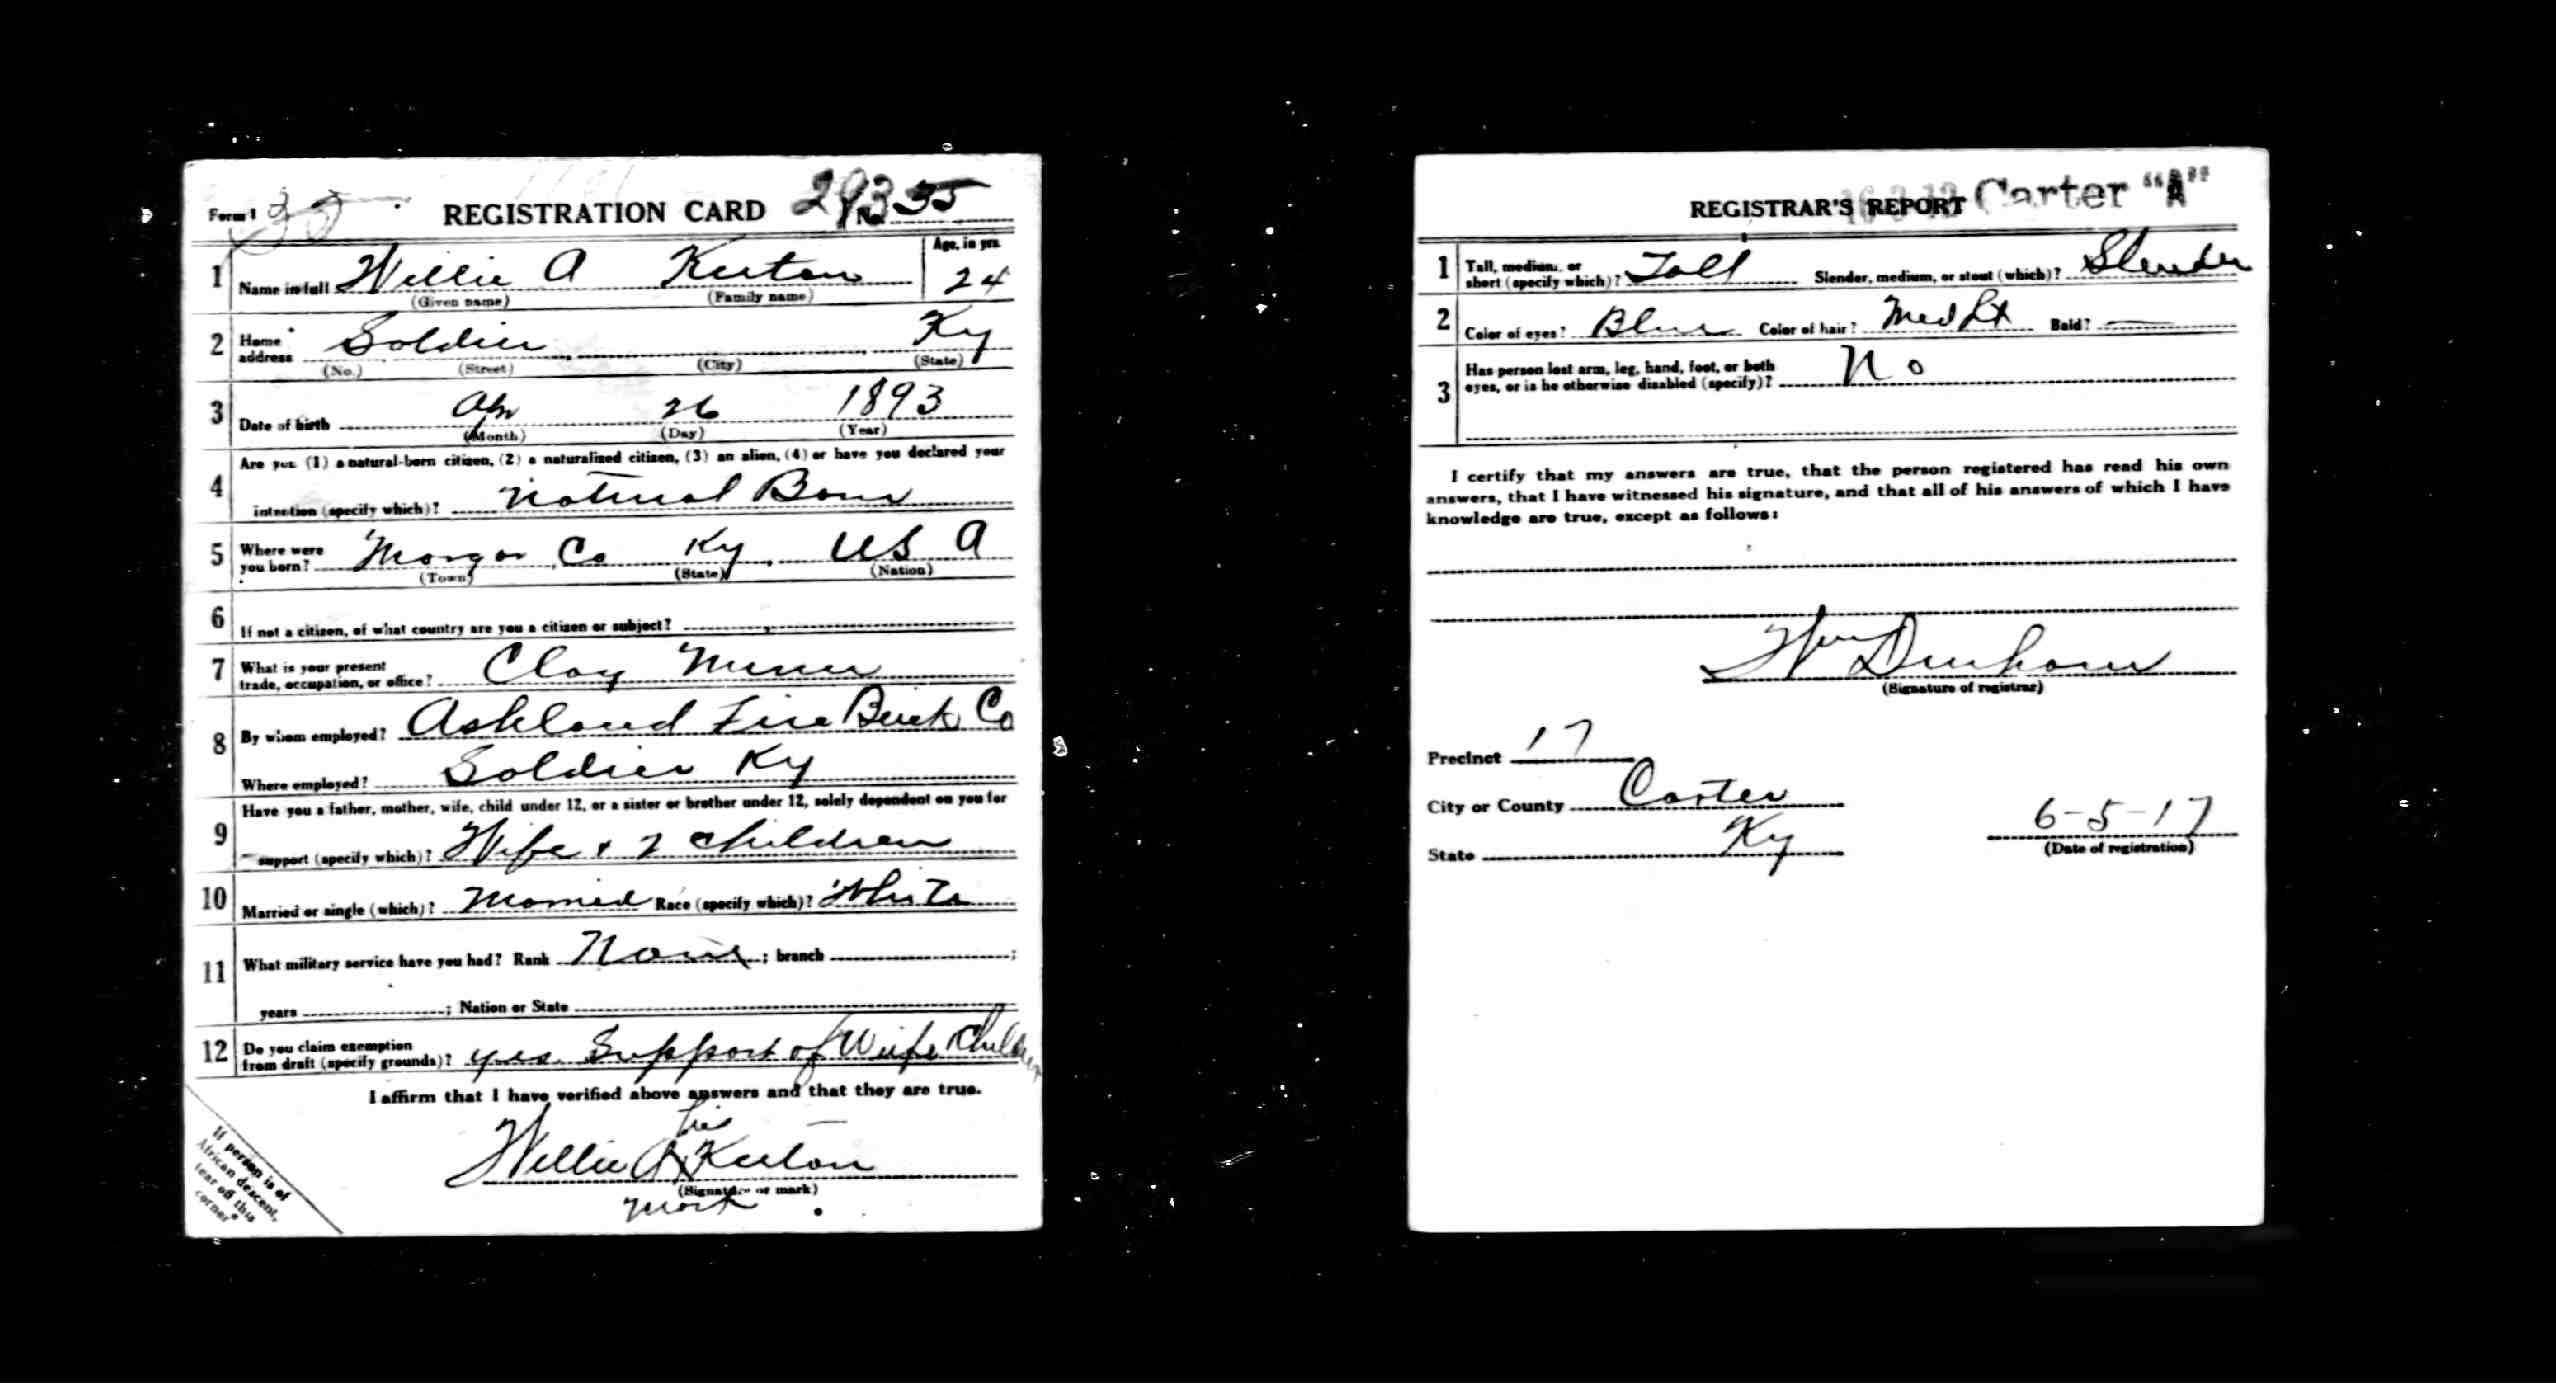 Form 1 35 REGISTRATION CARD 293 No. 35
1 Name in full Willie A Keeton Age, in yrs. 24
(Given name) (Family name)
2 Home address Soldier Ky
(No.) (Street) (City) (State)
3 Date of birth Apr 26 1893
(Month) (Day) (Year)
Are you (1) a natural-born citizen, (2) a naturalized citizen, (3) an alien, (4) or have you declared your
4 intention (specify which)? Natural Born
5 Where were you born? Morgan Co Ky US A
(Town) (State) (Nation)
6 If not a citizen, of what country are you a citizen or subject?
7 What is your present trade, occupation, or office? Clay Miner
8 By whom employed? Ashland Fire Brick Co
Where employed? Soldier Ky
Have you a father, mother, wife, child under 12, or a sister or brother under 12, solely dependent on you for
9 support (specify which)? Wife & 2 children
10 Married or single (which)? Married Race (specify which)? White
11 What military service have you had? Rank None ; branch ;
years ; Nation or State
12 Do you claim exemption from draft (specify grounds)? yes Support of Wife Children
I affirm that I have verified above answers and that they are true.
his
Willie A X Keeton
(Signature or mark)
mark
If person is of
African descent,
tear off this
corner
REGISTRAR'S REPORT Carter "A"
1 Tall, medium, or short (specify which)? Tall Slender, medium, or stout (which)? Slender
2 Color of eyes? Blue Color of hair? Med Lt Bald? —
3 Has person lost arm, leg, hand, foot, or both eyes, or is he otherwise disabled (specify)? No
I certify that my answers are true, that the person registered has read his own
answers, that I have witnessed his signature, and that all of his answers of which I have
knowledge are true, except as follows:
Wm Durham
(Signature of registrar)
Precinct 17
City or County Carter
State Ky 6-5-17
(Date of registration)